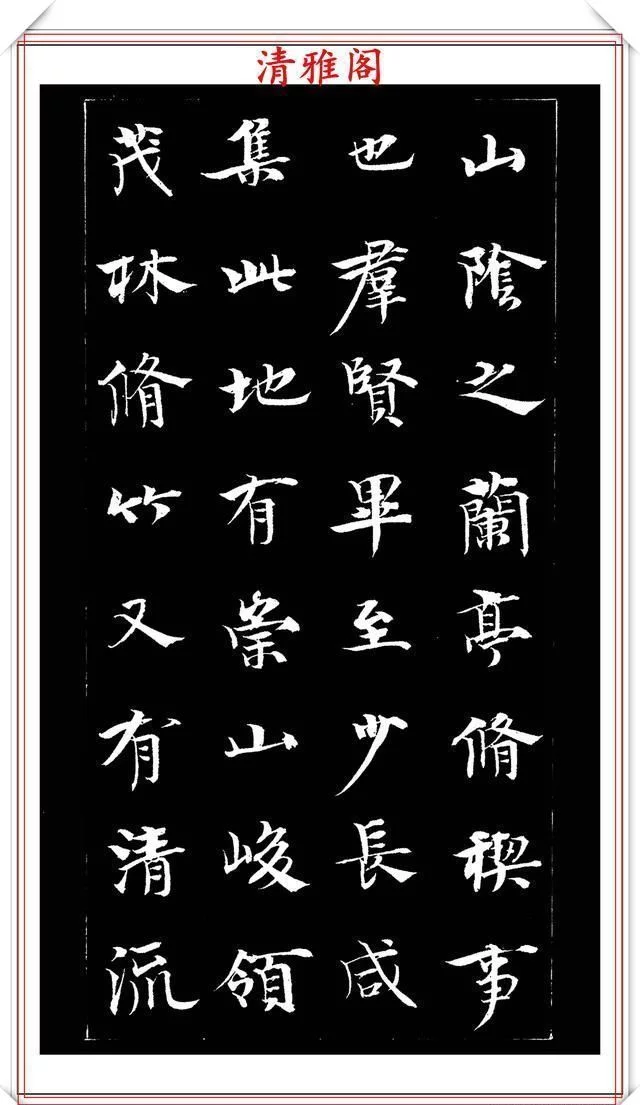 清雅阁
山陰之蘭亭脩稧事
也羣賢畢至少長咸
集此地有崇山峻領
茂林脩竹又有清流